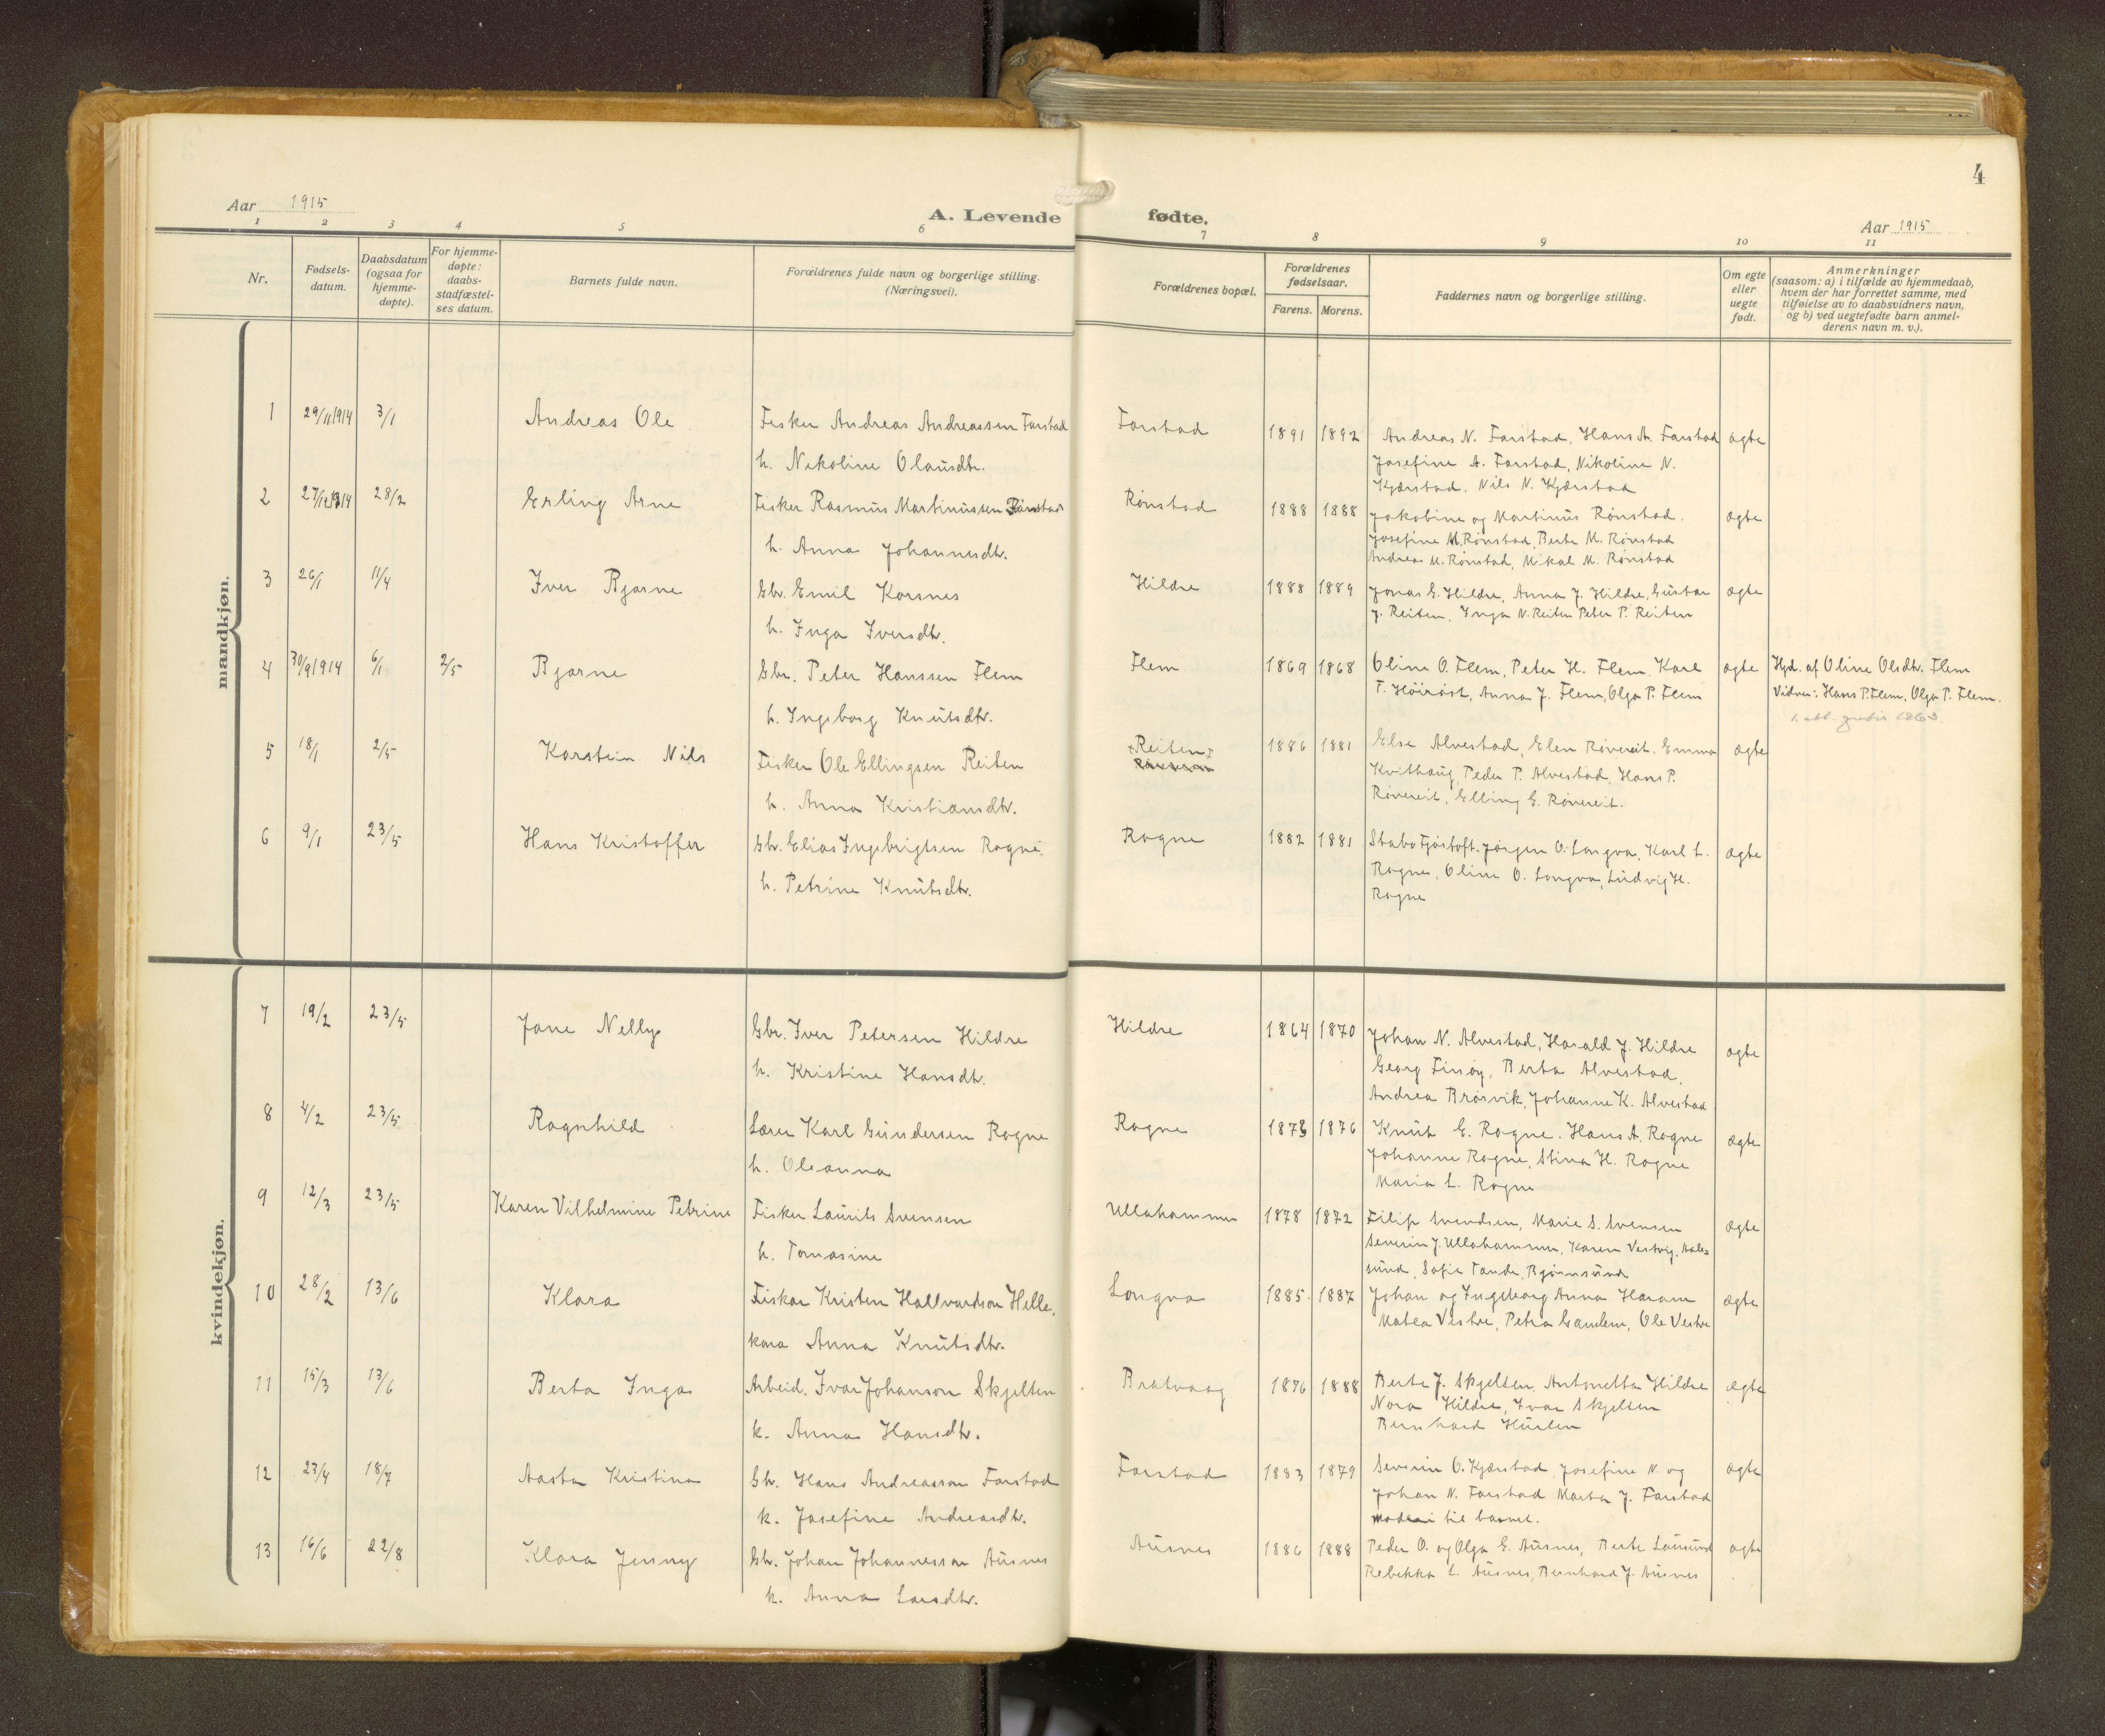 4
Aar 1915
A. Levende fødte.
Aar 1915
1 2 3 4 5 6 7 8 9 10 11
Nr.
Fødsels-
datum.
Daabsdatum
(ogsaa for
hjemme-
døpte).
For hjemme-
døpte:
daabs-
stadfæstel-
ses datum.
Barnets fulde navn.
Forældrenes fulde navn og borgerlige stilling.
(Næringsvei).
Forældrenes bopæl.
Forældrenes
fødselsaar.
Farens. Morens.
Faddernes navn og borgerlige stilling.
Om egte
eller
uegte
født.
Anmerkninger
(saasom: a) i tilfælde av hjemmedaab,
hvem der har forrettet samme, med
tilføielse av to daabsvidners navn,
og b) ved uegtefødte barn anmel-
derens navn m. v.).
mandkjøn.
1 29/11 1914 3/1 Andreas Ole Fisker Andreas Andreassen Farstad Farstad 1891 1892 Andreas N. Farstad, Hans A. Farstad ægte
h. Nikoline Olausdtr. Josefine A. Farstad, Nikoline N.
Kjærstad, Nils N. Kjærstad
2 27/12 1914 28/2 Erling Arne Fisker Rasmus Martinussen Rønstad Rønstad 1888 1888 Jakobine og Martinus Rønstad. ægte
h. Anna Johannesdtr. Josefine M. Rønstad, Berte M. Rønstad
Andreas M. Rønstad, Mikal M. Rønstad
3 26/1 11/4 Iver Bjarne Gbr. Emil Korsnes Hildre 1888 1889 Jonas G. Hildre, Anna J. Hildre, Gustav ægte
h. Inga Iversdtr. J. Reiten, Inga N. Reiten Peter P. Reiten
4 30/9 1914 6/1 2/5 Bjarne Gbr. Peter Hanssen Flem Flem 1869 1868 Oline O. Flem, Peter H. Flem, Karl ægte Hjd. af Oline Olsdtr. Flem
h. Ingeborg Knutsdtr. Anna J. Flem, Olga P. Flem Vidner: Hans P. Flem, Olga P. Flem.
5 18/1 2/5 Karstein Nils Fisker Ole Ellingsen Reiten Reiten 1886 1881 Else Alvestad, Elen Røvereit. Emma ægte
h. Anna Kristiansdtr. Kvithaug, Peder P. Alvestad, Hans P.
Røvereit, Elling E. Røvereit.
6 9/1 23/5 Hans Kristoffer Gbr. Elias Ingebrigtsen Rogne Rogne 1882 1881 Fjørtoft. Jørgen O. Longva, Karl L. ægte
h. Petrine Knutsdtr. Rogne, Oline O. Longva, Ludvig H.
Rogne
kvindekjøn.
7 19/2 23/5 Jane Nelly Gbr. Iver Petersen Hildre Hildre 1864 1870 Johan N. Alvestad, Harald J. Hildre ægte
h. Kristine Hansdtr. Georg Finøy, Berta Alvestad,
Andrea Brøsvik, Johanne K. Alvestad
8 4/2 23/5 Ragnhild Lærer Karl Gundersen Rogne Rogne 1876 Knut E. Rogne. Hans A. Rogne ægte
h. Oleanna Johanne Rogne, Stina H. Rogne
Maria L. Rogne
9 12/3 23/5 Karen Vilhelmine Petrine Fisker Laurits Svensen Ullahammen 1878 1872 Filip Svendsen, Marie S. Svensen ægte
h. Tomasine Severin J. Ullahammen, Karen Vestvig, Aale-
sund, Sofie Tande, Bjørnsund
10 28/2 13/6 Klara Fiskar Kristen Hallvardson Helle, Longva 1885 1887 Johan og Ingeborg Anna Haram ægte
kona Anna Knutsdtr. Matea Vestre, Petra Gamlem, Ole Vestre
11 15/3 13/6 Berta Inga Arbeid. Ivar Johanson Skjelten Bratvaag 1876 1888 Berte J. Skjelten. Antonetta Hildre ægte
k. Anna Hansdtr. Nora Hildre, Ivar Skjelten
Bernhard Hurlen
12 23/4 18/7 Aasta Kristina Gbr. Hans Andreasson Farstad Farstad 1883 1879 Severin O. Kjærstad, Josefine N. og ægte
k. Josefine Andreasdtr. Johan N. Farstad Marta J. Farstad
moderi til barnet.
13 16/6 22/8 Klara Jenny Gbr. Johan Johannesson Ausnes Ausnes 1886 1888 Peder O. og Olga E. Ausnes, Berte Lausund ægte
k. Anna Larsdtr. Rebekka L. Ausnes, Bernhard J. Ausnes